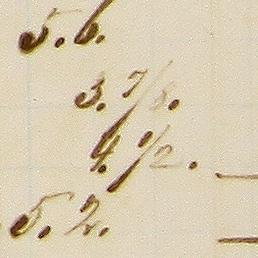 5. 6.
3. 7/8.
4. 1/2.
5. 2.